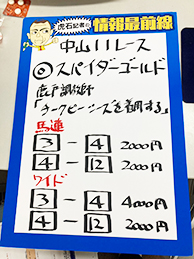 虎石記者の情報最前線
中山11レース
◎スパイダーゴールド
鹿戸調教師
「チークピーシズを着用する」
馬連
3－4 2000円
4－12 2000円
ワイド
3－4 4000円
4－12 2000円